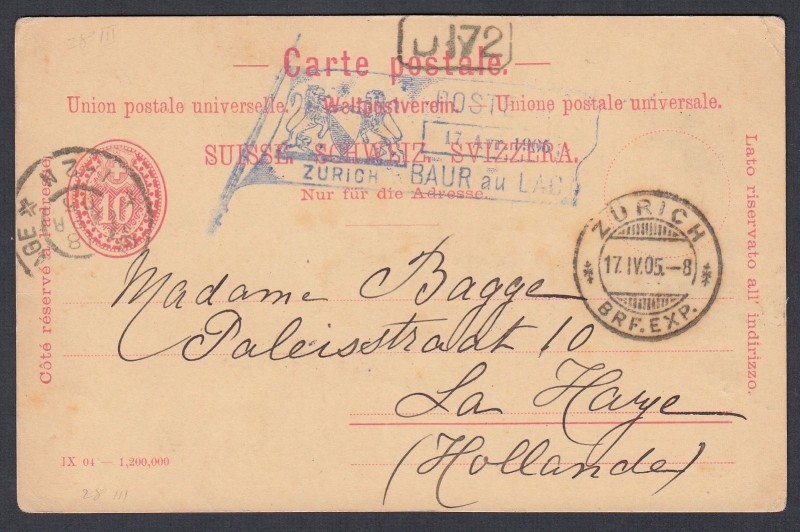 28 III
D 172
Carte postale.
Union postale universelle. – Weltpostverein. – Unione postale universale.
SUISSE. SCHWEIZ. SVIZZERA.
Nur für die Adresse.
Côté réservé à l'adresse.
Lato riservato all' indirizzo.
10
POST
17 1905
ZURICH BAUR au LAC
ZÜRICH
17.IV.05.–8
BRF. EXP.
Madame Bagge
Paleisstraat 10
La Haye
(Hollande)
IX 04 — 1,200,000
28 III